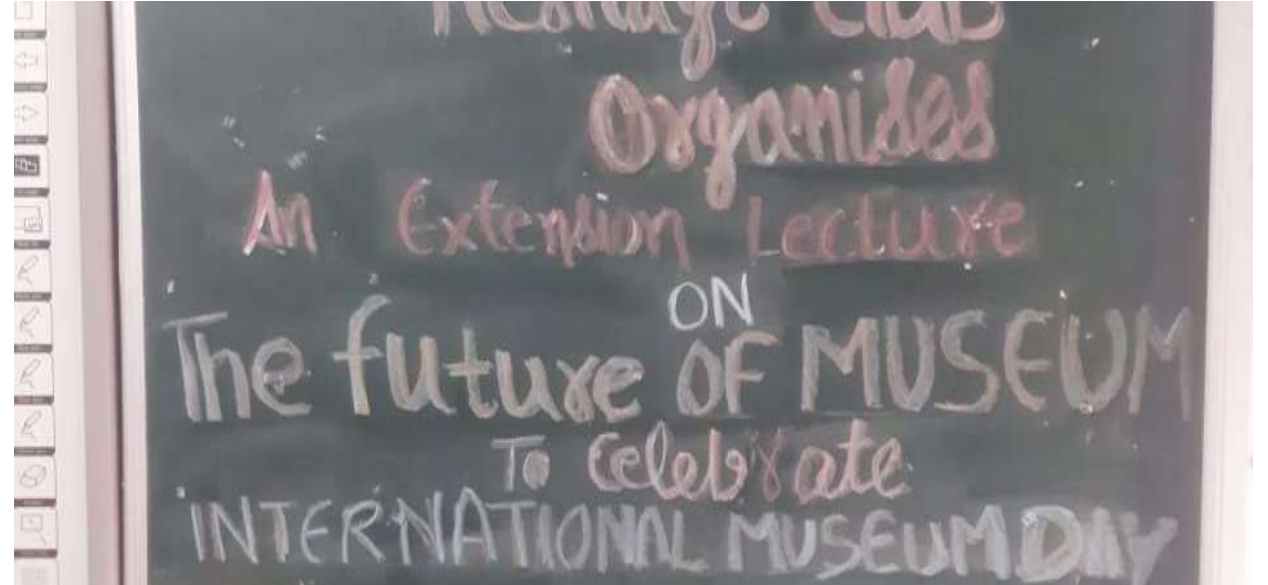 Heritage Club
Organises
An Extension Lecture
ON
The future OF MUSEUM
To Celebrate
INTERNATIONAL MUSEUM DAY